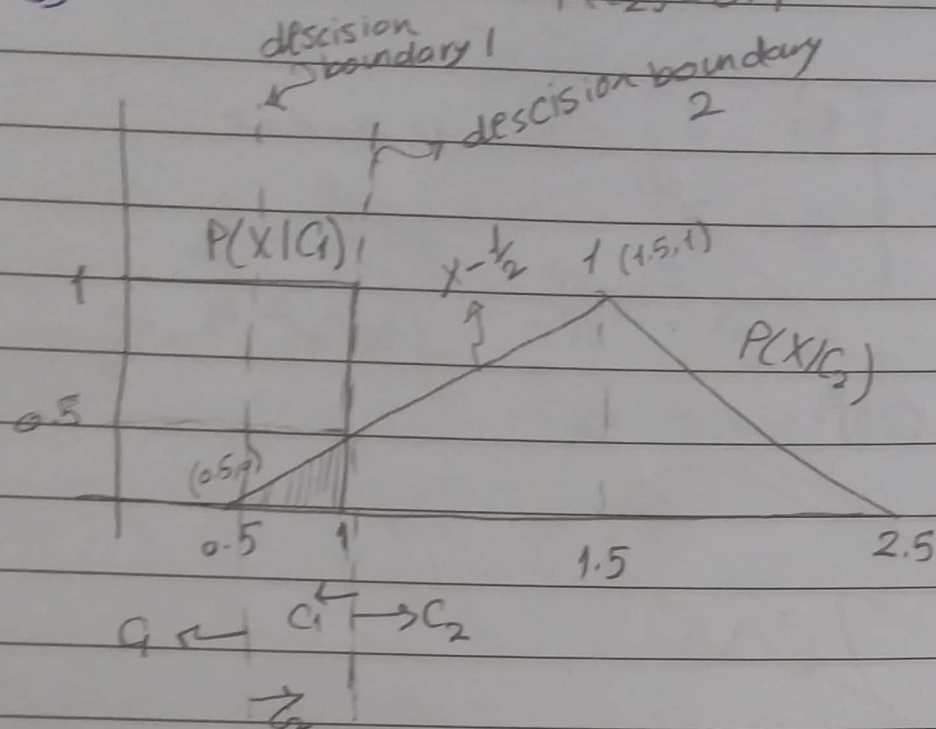 descision
boundary 1
descision boundary
2
P(X/C1)
x-1/2
1 (1.5,1)
1
P(X/C2)
0.5
(0.5,0)
0.5
1
1.5
2.5
C1
C2
C1